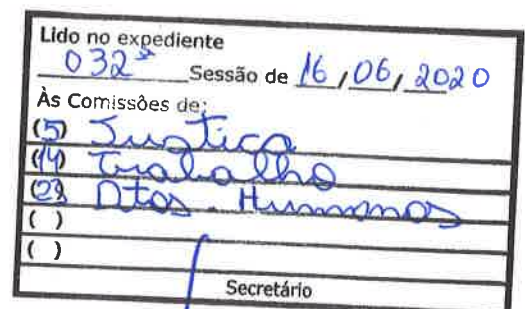 Lido no expediente
032ª Sessão de 16/06/2020
Às Comissões de:
(5) Justiça
(14) Trabalho
(23) Dtos. Humanos
( )
( )
Secretário